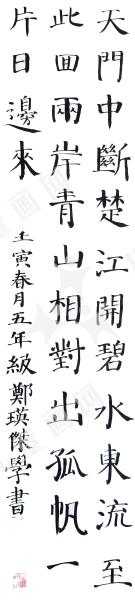 天門中斷楚江開碧水東至
此回兩岸青山相對出孤帆一
片日邊來
壬寅春月五年級鄭瑛傑學書